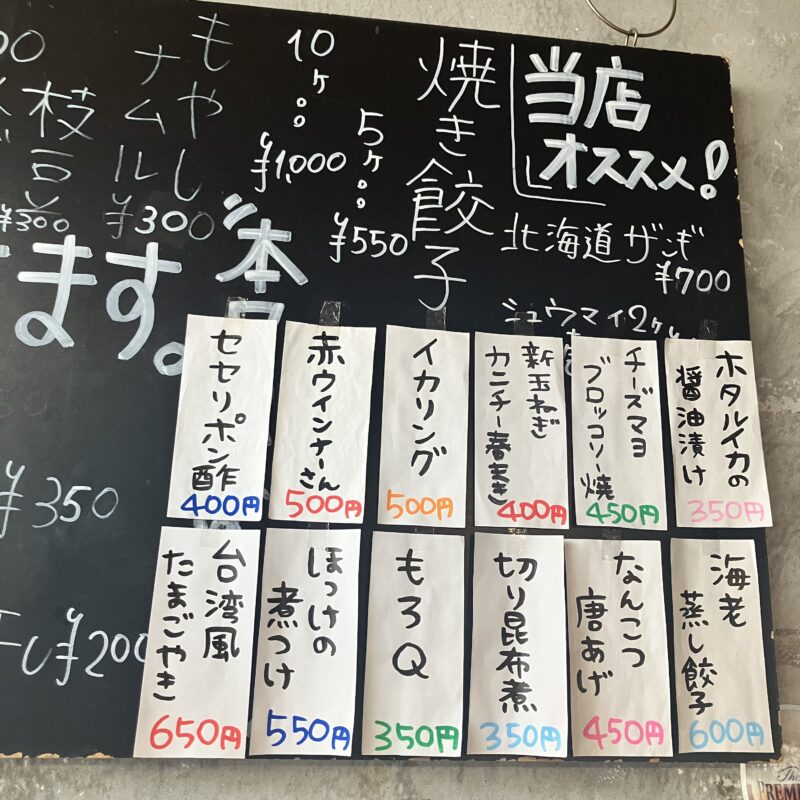 当店
オススメ!
北海道ザンギ
¥700
シュウマイ2ヶ
焼き餃子
5ヶ
¥550
10ヶ
¥1,000
もやし
ナムル
¥300
枝豆
¥300
本日
ます。
¥350
干し¥200
ホタルイカの
醤油漬け
350円
チーズマヨ
ブロッコリー焼
450円
新玉ねぎ
カニチー春まき
400円
イカリング
500円
赤ウインナーさん
500円
セセリポン酢
400円
海老
蒸し餃子
600円
なんこつ
唐あげ
450円
切り昆布煮
350円
もろQ
350円
ほっけの
煮つけ
550円
台湾風
たまごやき
650円